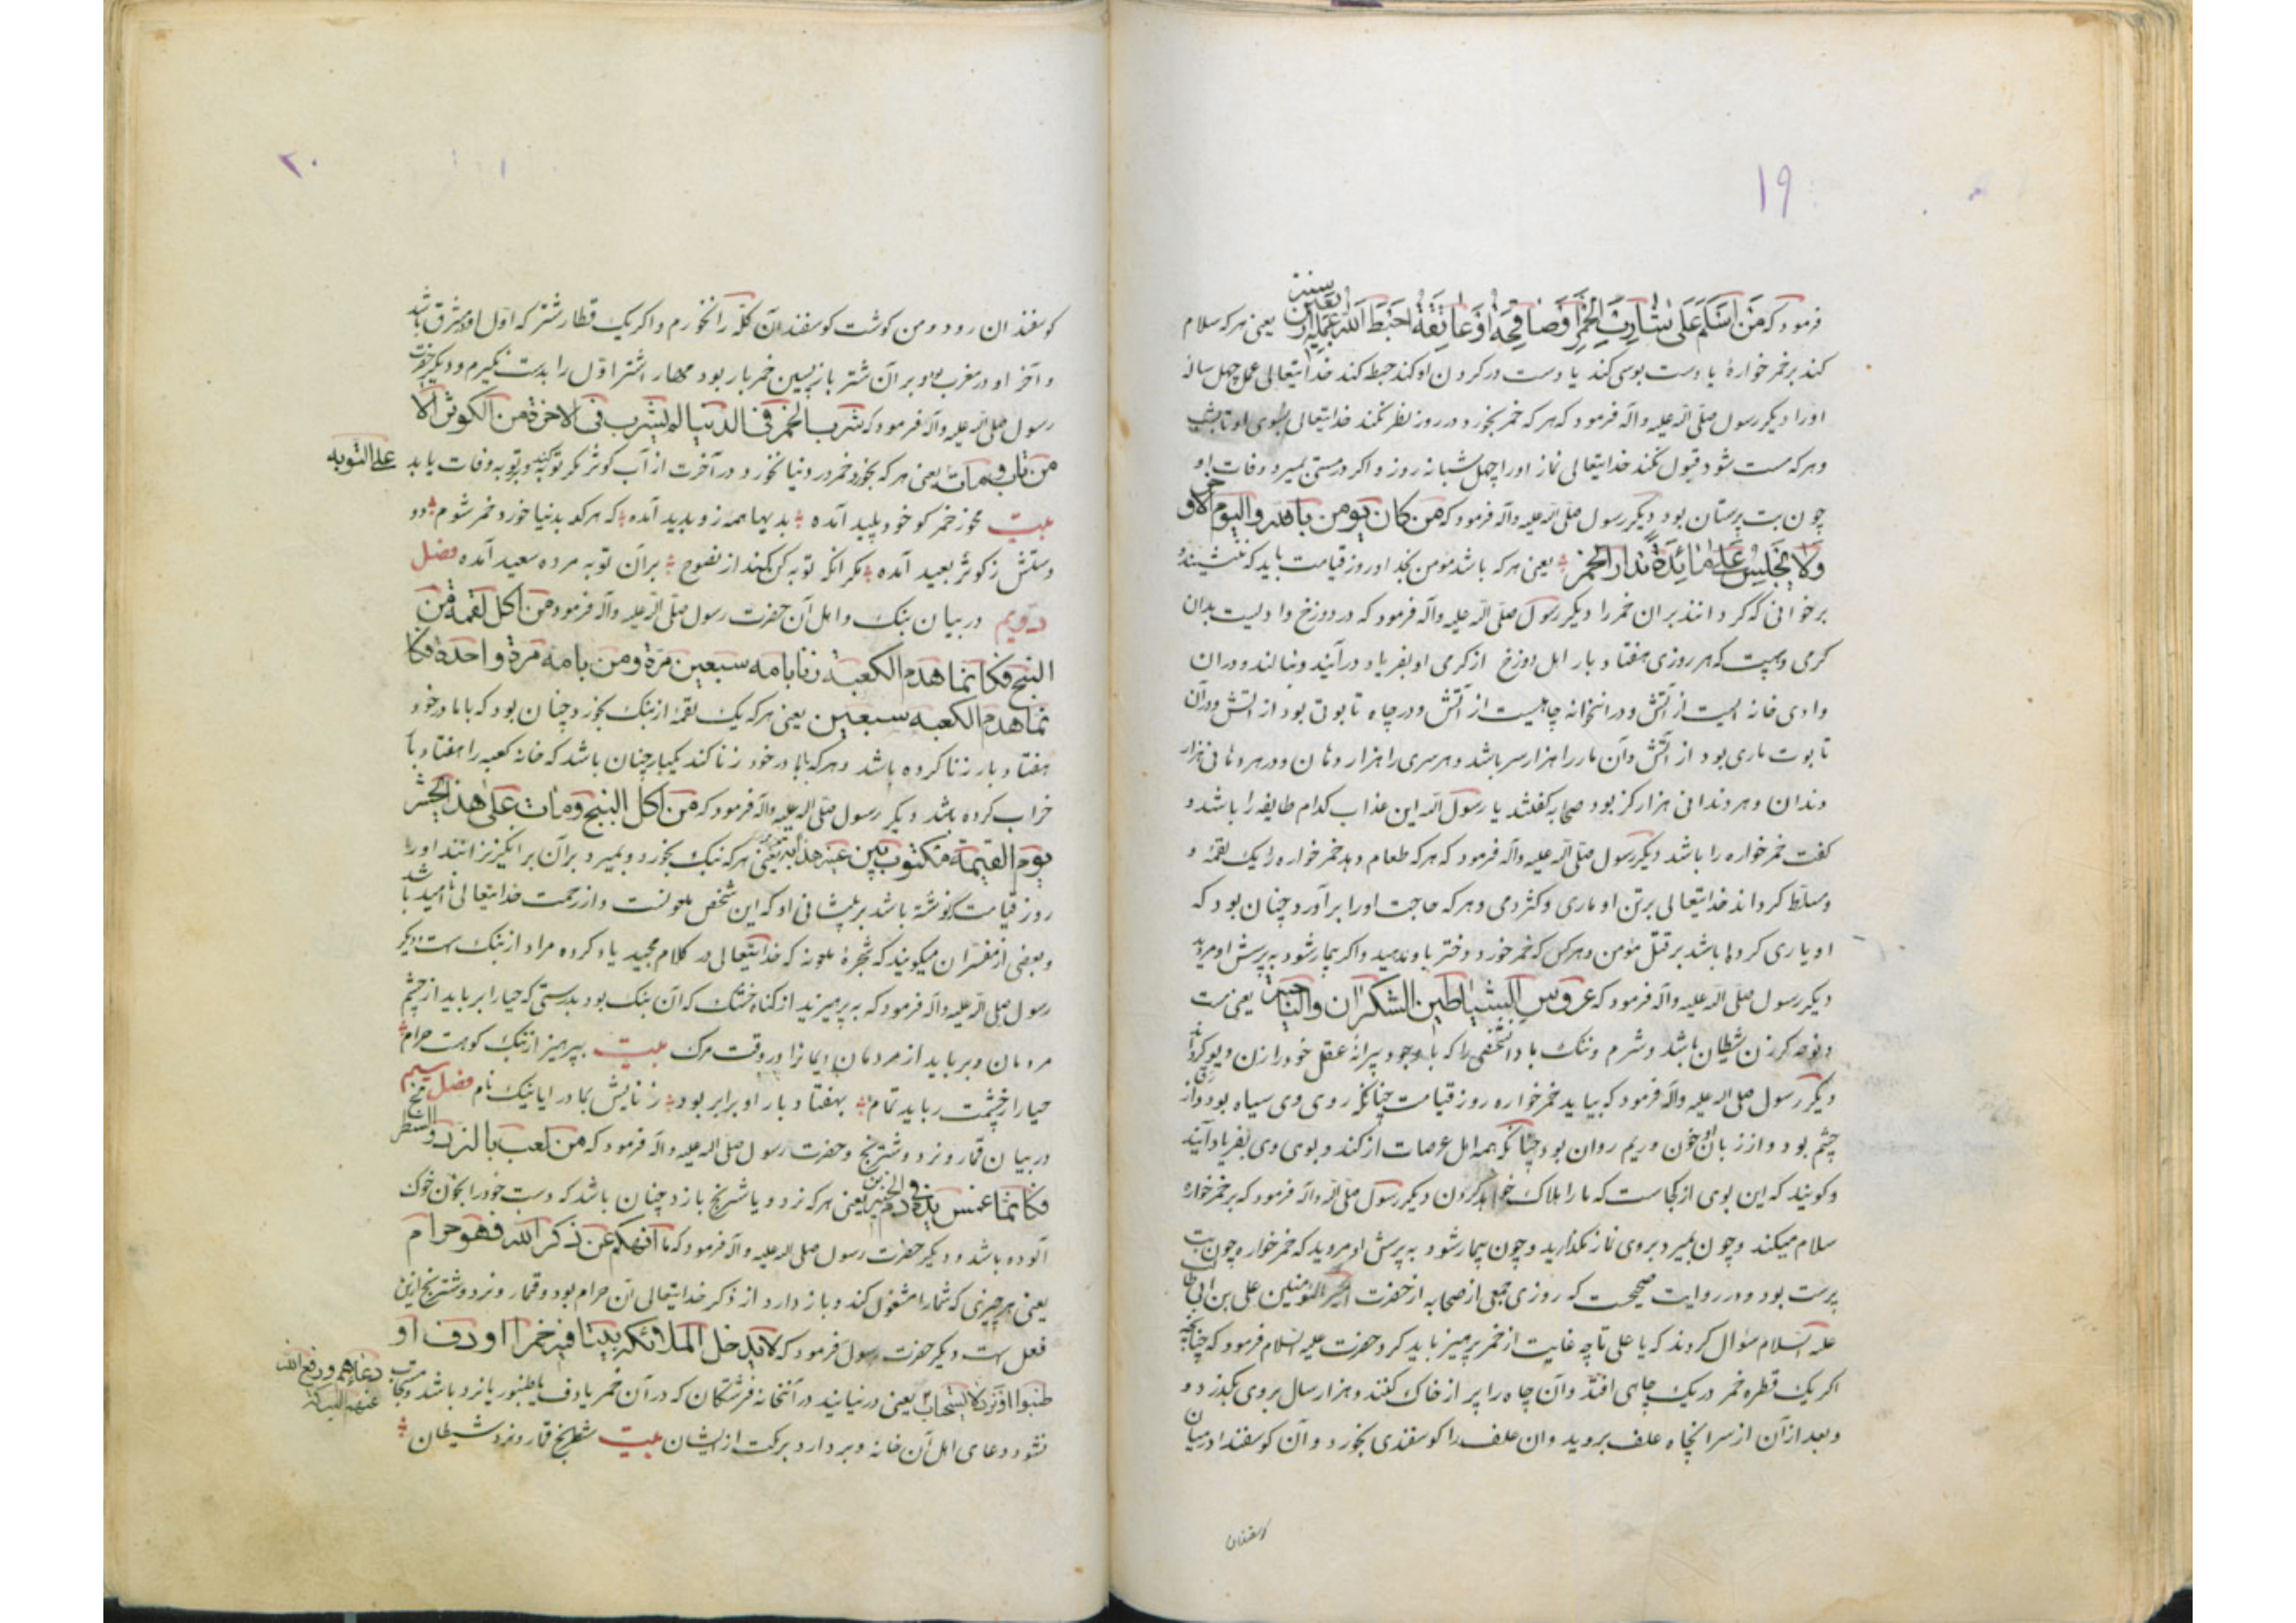 ۱۹
فرمود که مَن اسَلَّمَ عَلَى شارِبَ الخَمرِ اَوصافِحَهُ اَوعانِقَهُ احَبَطَ اللّه عَمَلِه اربعین سنین یعنی هر که سلام
کند بر خمر خوارهٔ یا دست بوسی کند یا دست در کردن او کند حبط کند خدایتعالی عمل چهل سالهٔ
اورا دیکر رسول صلی اللّه علیه واله فرمود که هر که خمر بخورد در روز نظر نکند خدایتعالی بسوی او تا بشب
و هر که مست شود قبول نکند خدایتعالی نماز اورا چهل شبانه روز و اکر در مستی بمیرد وفات او
چون بت پرستان بود دیکر رسول صلی اللّه علیه واله فرمود که من کان یومن باللّه والیوم الاخر
وَلا یَجلِسُ عَلى مائِدَةٍ تدار الخمر یعنی هر که باشد مؤمن بخدا و روز قیامت باید که ننشیند
بر خوانی که کردانند بران خمر را دیکر رسول صلی اللّه علیه واله فرمود که در دوزخ وادیست بدان
کرمی و هیبت که هر روزی هفتاد بار اهل دوزخ از کرمی او بفریاد درآیند و بنالند و دران
وادی خانه ایست از آتش و در انخانه چاهیست از آتش و در چاه تابوتی بود از آتش و دران
تابوت ماری بود از آتش وآن مار را هزار سر باشد و هر سری را هزار دهان و در هر دهانی هزار
دندان و هر دندانی هزار کز بود صحابه کفتند یا رسول اللّه این عذاب کدام طایفه را باشد
کفت خمر خواره را باشد دیکر رسول صلی اللّه علیه واله فرمود که هر که طعام دهد خمر خواره را یک لقمهٔ
مسلط کرداند خدایتعالی برتن او ماری و کژدمی و هر که حاجت اورا برآورد چنان بود که
او یاری کرده باشد بر قتل مؤمن و هر کس که خمر خورد دختر باو ندهید و اکر بیمار شود به پرسش او مروید
دیکر رسول صلی اللّه علیه واله فرمود که عروس الشیاطین السکران والنایحة یعنی مست
و نوحه کر زن شیطان باشد و شرم و ننک باد آن شخصی را که با وجود پیرانهٔ عقل خود را زن دیو کرداند
دیکر رسول صلی اللّه علیه واله فرمود که بیاید خمر خواره روز قیامت چنانکه روی وی سیاه بود وازرق
چشم بود و از زبان او خون و ریم روان بود چنانکه همه اهل عرصات از کند و بوی وی بفریاد آیند
و کویند که این بوی از کجاست که مارا هلاک خواهد کردن دیکر رسول صلی اللّه واله فرمود که بر خمر خواره
سلام میکند و چون بمیرد بروی نماز مکذارید و چون بیمار شود به پرسش او مروید که خمر خواره چون بت
پرست بود و در روایت صحیحست که روزی جمعی از صحابه از حضرت امیر المؤمنین علی بن ابی طالب
علیه السلام سؤال کردند که یا علی تا چه غایت از خمر پرهیز باید کرد حضرت علیه السلام فرمود که چنانچه
اکر یک قطره خمر در یک چاهی افتد وآن چاه را پر از خاک کنند و هزار سال بروی بکذرد و
و بعد از آن از سر انچاه علف بروید وان علف را کوسفندی بخورد و آن کوسفند در میان
کوسفندان
۲۰
کوسفندان رود و من کوشت کوسفندان کله را نخورم و اکر یک قطار شتر که اول او در مشرق باشد
و آخر او در مغرب بود و بر آن شتر باز پسین خمر بار بود مهار اشتر اول را بدست نکیرم و دیکر حضرت
رسول صلی اللّه علیه واله فرمود که شرب الخمر فی الدنیا لم یشرب فی الاخرة من الکوثر الا
من تاب ومات یعنی هر که بخورد خمر در دنیا نخورد در آخرت از آب کوثر مکر توبه کند و بتوبه وفات یابد
على التوبه
بیت مخور خمر کو خود پلید آمده بدیها همه زو پدید آمده که هر کو بدنیا خورد خمر شوم دو
دستش ز کوثر بعید آمده مکر انکه توبه کن کهند از نصوح بر آن توبه مرده سعید آمده فصل
دویم در بیان بنک و اهل آن حضرت رسول صلی اللّه علیه واله فرمود من اکل لقمه من
البنج فکانما هدم الکعبة زنا بامه سبعین مرة ومن بامه مرة واحدة فکا
نما هدم الکعبه سبعین یعنی هر که یک لقمهٔ از بنک بخورد چنان بود که با مادر خود
هفتاد بار زنا کرده باشد و هر که با مادر خود زنا کند یکبار چنان باشد که خانه کعبه را هفتاد بار
خراب کرده باشد دیکر رسول صلی اللّه علیه واله فرمود که من اکل البنج ومات على هذا یحشر
یوم القیمة مکتوب بین عینیه یعنی هر که بنک بخورد و بمیرد برآن برانکیزانند اورا
روز قیامت نوشته باشد بر پیشانی او که این شخص ملعونست و از رحمت خدایتعالی ناامید باشد
و بعضی از مفسران میکویند که شجرهٔ ملعونه که خدایتعالی در کلام مجید یاد کرده مراد از بنک است دیکر
رسول صلی اللّه علیه واله فرمود که بپرهیزید از کناه خشک که آن بنک بود بدرستی که حیا را برباید از چشم
مردمان و برباید از مردمان ایمانرا در وقت مرک بیت بپرهیز از بنک کوهست حرام
حیارا ز چشمت رباید تمام بهفتاد بار او برابر بود زنایش بمادر ایا نیک نام فصل سیم
در بیان قمار و نرد و شترنج و حضرت رسول صلی اللّه علیه واله فرمود که من لعب بالنرد والشطرنج
فکانما غمس یده فی دم الخنزیر یعنی هر که نرد و یا شترنج بازد چنان باشد که دست خودرا بخون خوک
آلوده باشد و دیکر حضرت رسول صلی اللّه علیه واله فرمود که ما عن ذکر اللّه فهو حرام
یعنی هر چیزی که شمارا مشغول کند و باز دارد از ذکر خدایتعالی آن حرام بود و قمار و نرد و شترنج ازین
فعل است دیکر حضرت رسول فرمود که لا یدخل الملائکه بیتا فیه خمرا او دف او
طنبوا او نرد لا یستجاب یعنی در نیایند در آنخانه فرشتکان که در آن خمر یا دف یا طنبور یا نرد باشد و مستجاب
دعاءهم ورفع اللّه
عنهم البرکة
نشود دعای اهل آن خانهٔ و بردارد برکت از ایشان بیت شطرنج قمار و نرد شیطان